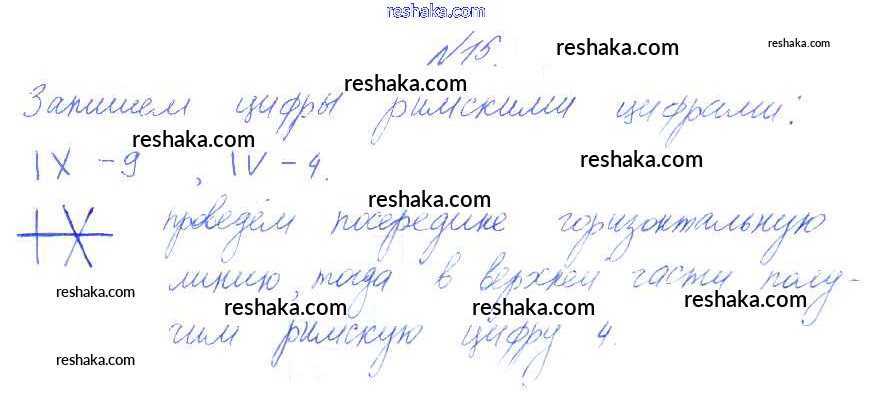 reshaka.com
№15. reshaka.com reshaka.com
reshaka.com
Запишем цифры римскими цифрами:
reshaka.com
IX - 9, IV - 4. reshaka.com
reshaka.com
IX проведём посередине горизонтальную
линию, тогда в верхней части полу-
reshaka.com reshaka.com reshaka.com reshaka.com
чим римскую цифру 4.
reshaka.com